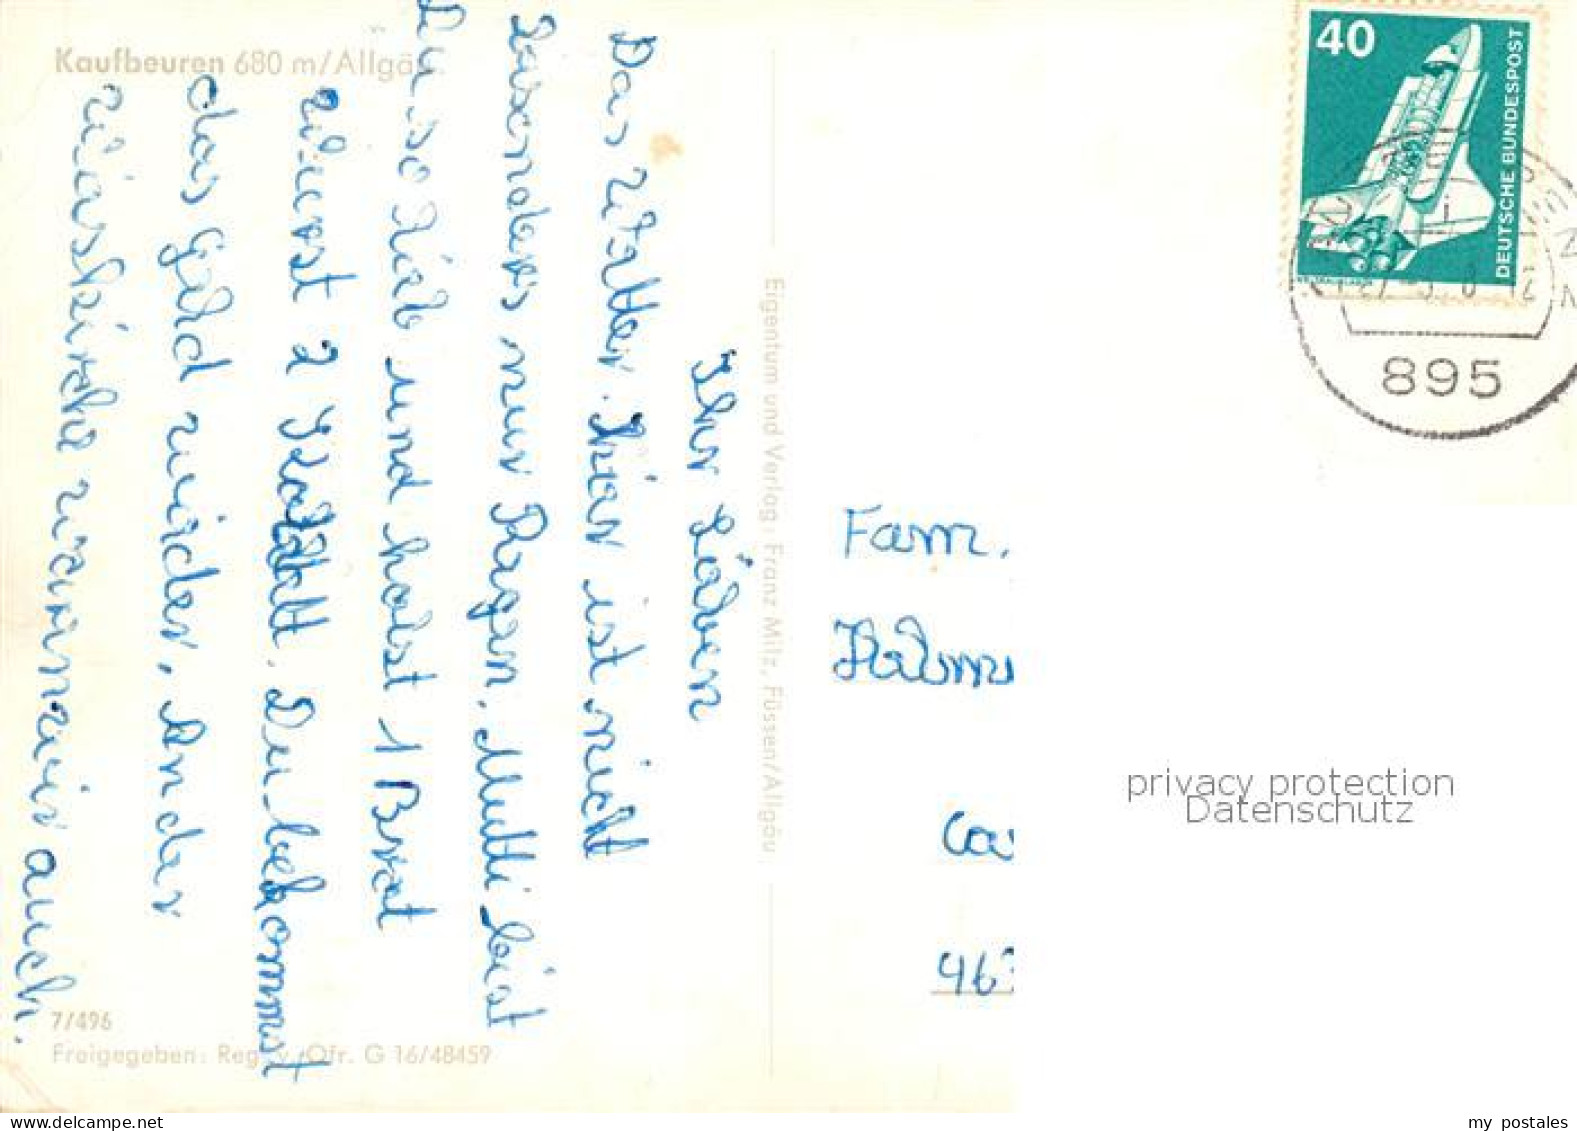 Kaufbeuren 680 m/Allgäu
Ihr Lieben
Das Wetter hier ist nicht
besonders nur Regen. Mutti bist
Du so lieb und holst 1 Brot
Wurst 2 Du bekommst
das Geld wieder. An der
Wieskirche waren wir auch.
7/496
Freigegeben: Reg. v. Ofr. G 16/48459
Eigentum und Verlag: Franz Milz, Füssen/Allgäu
40
DEUTSCHE BUNDESPOST
895
Fam.
463
privacy protection
Datenschutz
my postales